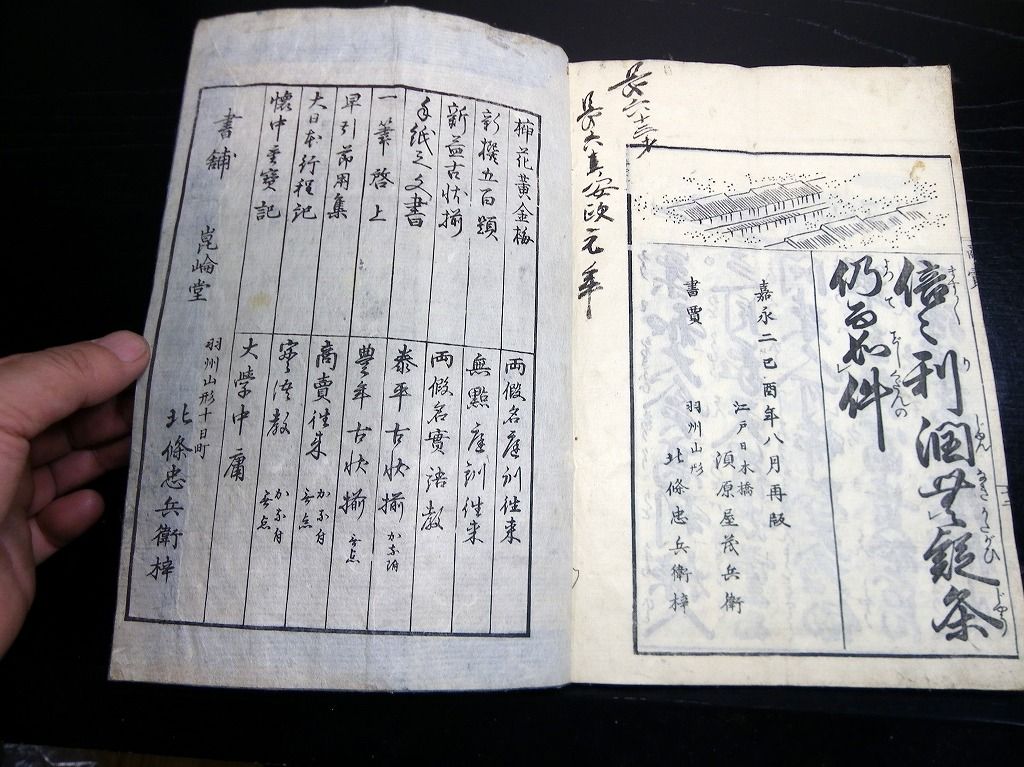 倍々利潤無疑条
仍而如件
嘉永二己酉年八月再版
江戸日本橋
須原屋茂兵衛
書賈
羽州山形
北條忠兵衛梓
安政元年
楠花黄金梅
新撰五百題
新益古状揃
手紙之文書
一筆啓上
早引節用集
大日本行程記
懐中重寳記
両假名庭訓徃来
無點庭訓徃来
両假名實語教
泰平古状揃 かな附
豊年古状揃 無点
商賣徃来 かな付 無点
實語教 かな付 無点
大學中庸
書舗
崑崘堂
羽州山形十日町
北條忠兵衛梓